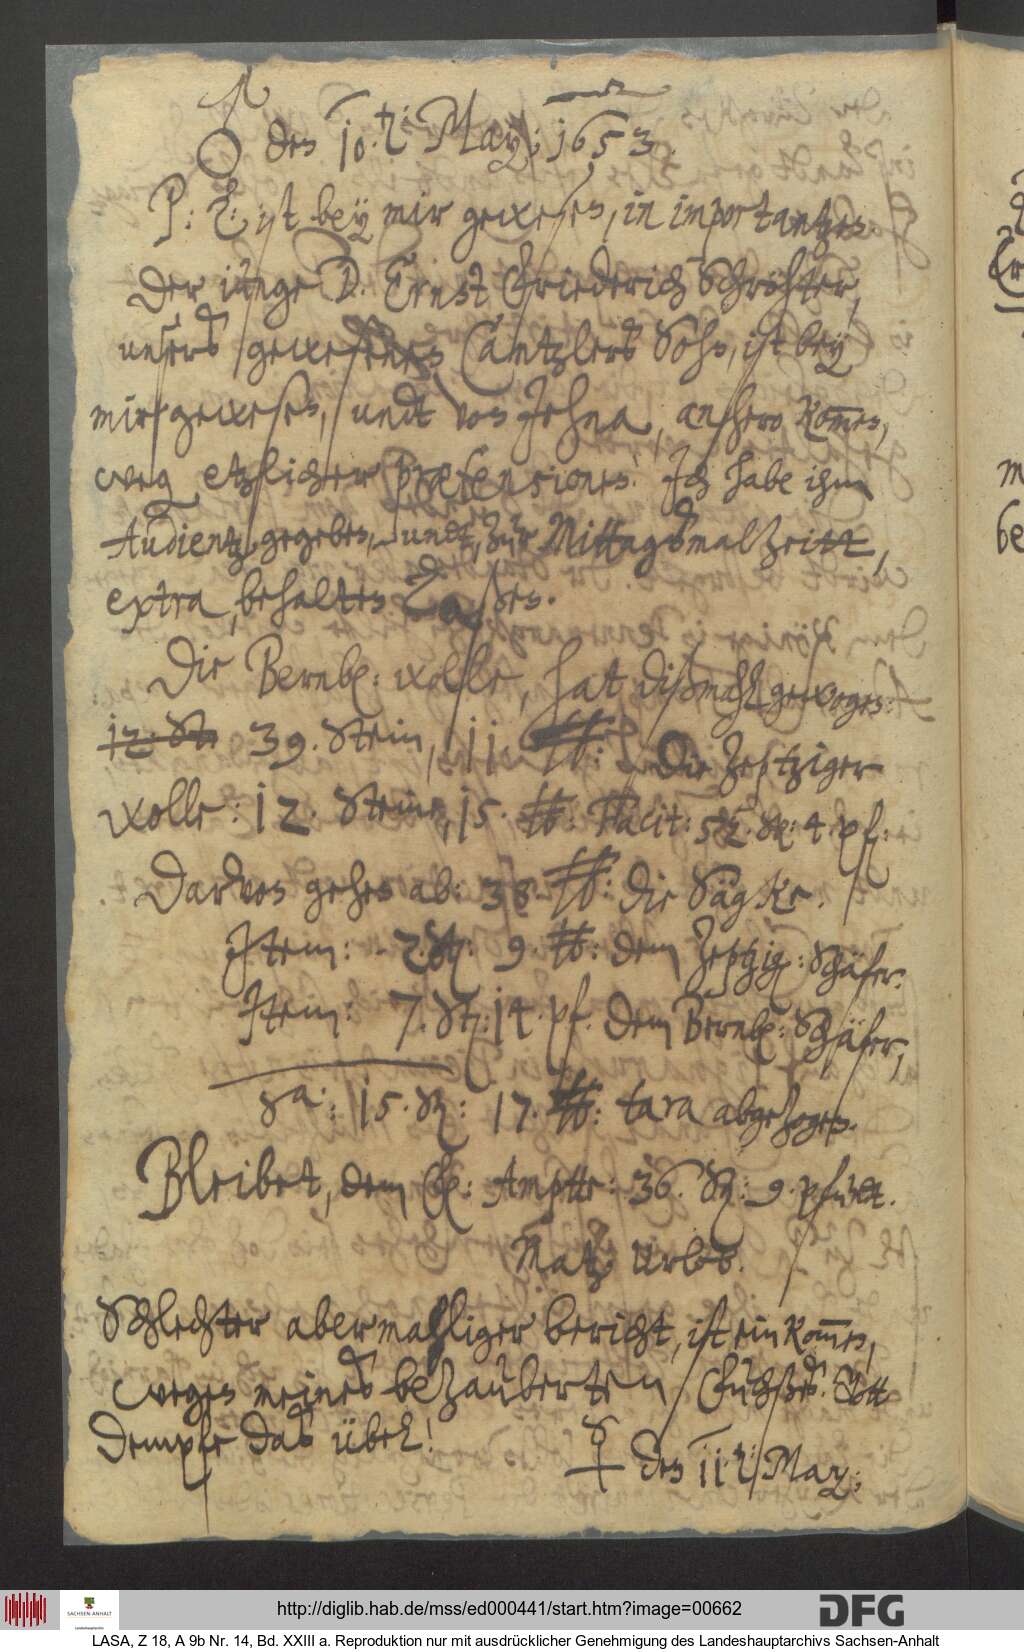 ♂ den 10.t: May: 1653.
P: L: ist bey mir gewesen, in importantzen
Der iunge D. Ernst Friederich Schröhter,
unsers gewesenen Cantzlers Sohn, ist bey
mir gewesen, undt von Jehna, anhero kom̅en,
weg etzlicher præsensiones: Ich habe ihm
Audientz gegeben, undt, zur Mittagsmalzeitt,
extra, behalten Laßen.
Die Bernb: wolle, hat dißmahl gewogen:
12. St: 39. Stein, 11. ℔: Die Zeptziger
wolle: 12. Steine, 15. ℔: Facit: 52. St: 4. pf:
Darvon gehen ab: 38. ℔: die Säcke.
Item: 2. St: 9. ℔: dem Zeptzig: Schäfer:
Item: 7. St: 14. pf. dem Bernb: Schäfer,
Sa: 15. St: 17. ℔: tara abgezogen.
Bleibet, dem F: Ampte: 36. St: 9. pfundt.
Matz Urlob.
Schlechter abermahliger bericht, ist ein kom̅en,
wegen meines bezauberten Fuchßes. Gott
dempfe das übel!
☿ den 11.t: May:
http://diglib.hab.de/mss/ed000441/start.htm?image=00662
DFG
SACHSEN-ANHALT
Landeshauptarchiv
LASA, Z 18, A 9b Nr. 14, Bd. XXIII a. Reproduktion nur mit ausdrücklicher Genehmigung des Landeshauptarchivs Sachsen-Anhalt